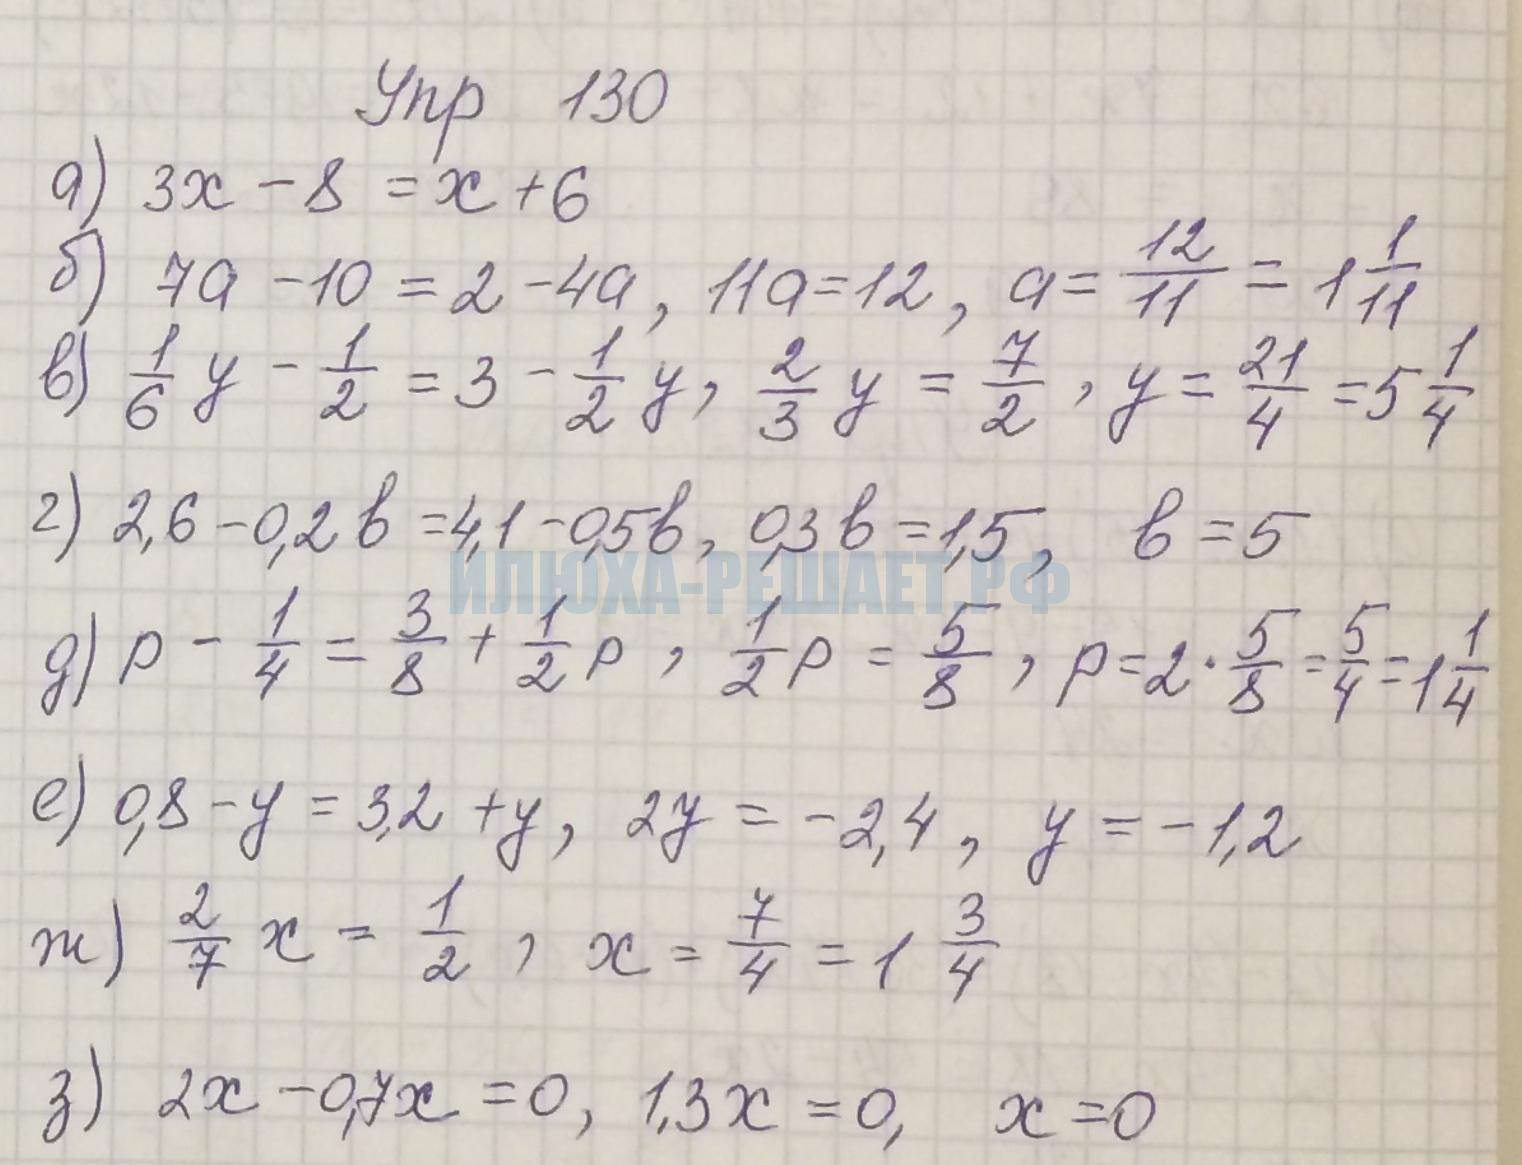 Упр 130
а) 3x - 8 = x + 6
б) 7a - 10 = 2 - 4a, 11a = 12, a = 12/11 = 1 1/11
в) 1/6 y - 1/2 = 3 - 1/2 y, 2/3 y = 7/2, y = 21/4 = 5 1/4
г) 2,6 - 0,2в = 4,1 - 0,5в, 0,3в = 1,5, в = 5
ИЛЮХА-РЕШАЕТ.РФ
д) p - 1/4 = 3/8 + 1/2 p, 1/2 p = 5/8, p = 2 · 5/8 = 5/4 = 1 1/4
е) 0,8 - y = 3,2 + y, 2y = -2,4, y = -1,2
ж) 2/7 x = 1/2, x = 7/4 = 1 3/4
з) 2x - 0,7x = 0, 1,3x = 0, x = 0